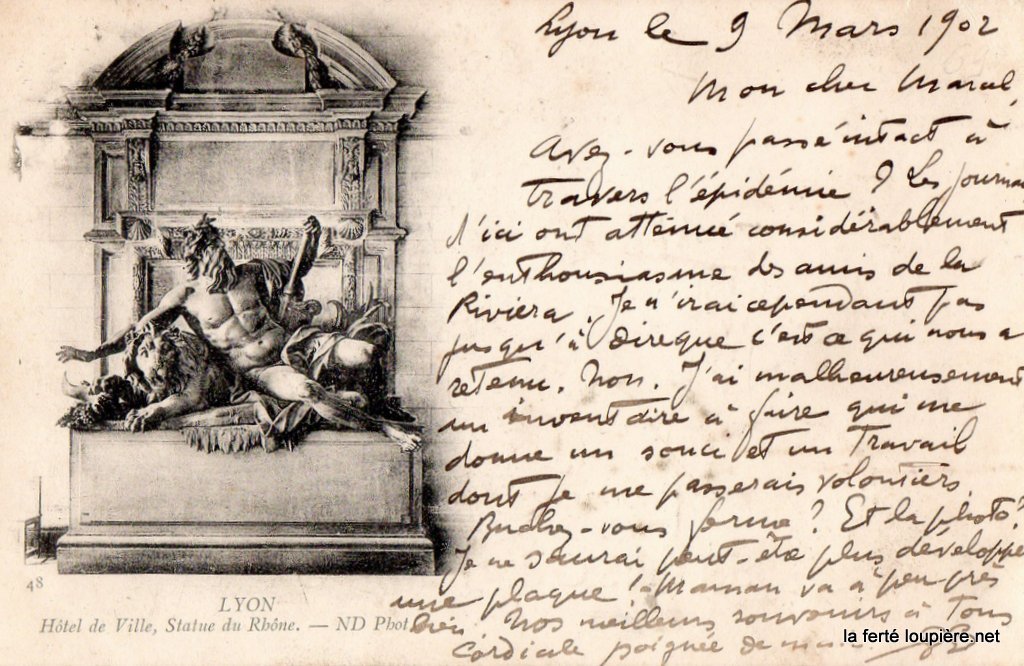 Lyon le 9 Mars 1902
Mon cher Marcel,
Avez-vous passé intact à
travers l'épidémie ? Les journaux
d'ici ont atténué considérablement
l'enthousiasme des amis de la
Riviera. Je n'irai cependant pas
jusqu'à dire que c'est ce qui nous a
retenu. Non. J'ai malheureusement
un inventaire à faire qui me
donne un souci et un travail
dont je me passerais volontiers
Buchez-vous ferme ? Et la photo ?
Je ne saurai peut-être plus développer
une plaque ! Maman va à peu près
bien. Nos meilleurs souvenirs à tous
Cordiale poignée de main.
48
LYON
Hôtel de Ville, Statue du Rhône. — ND Phot.
la ferté loupière.net